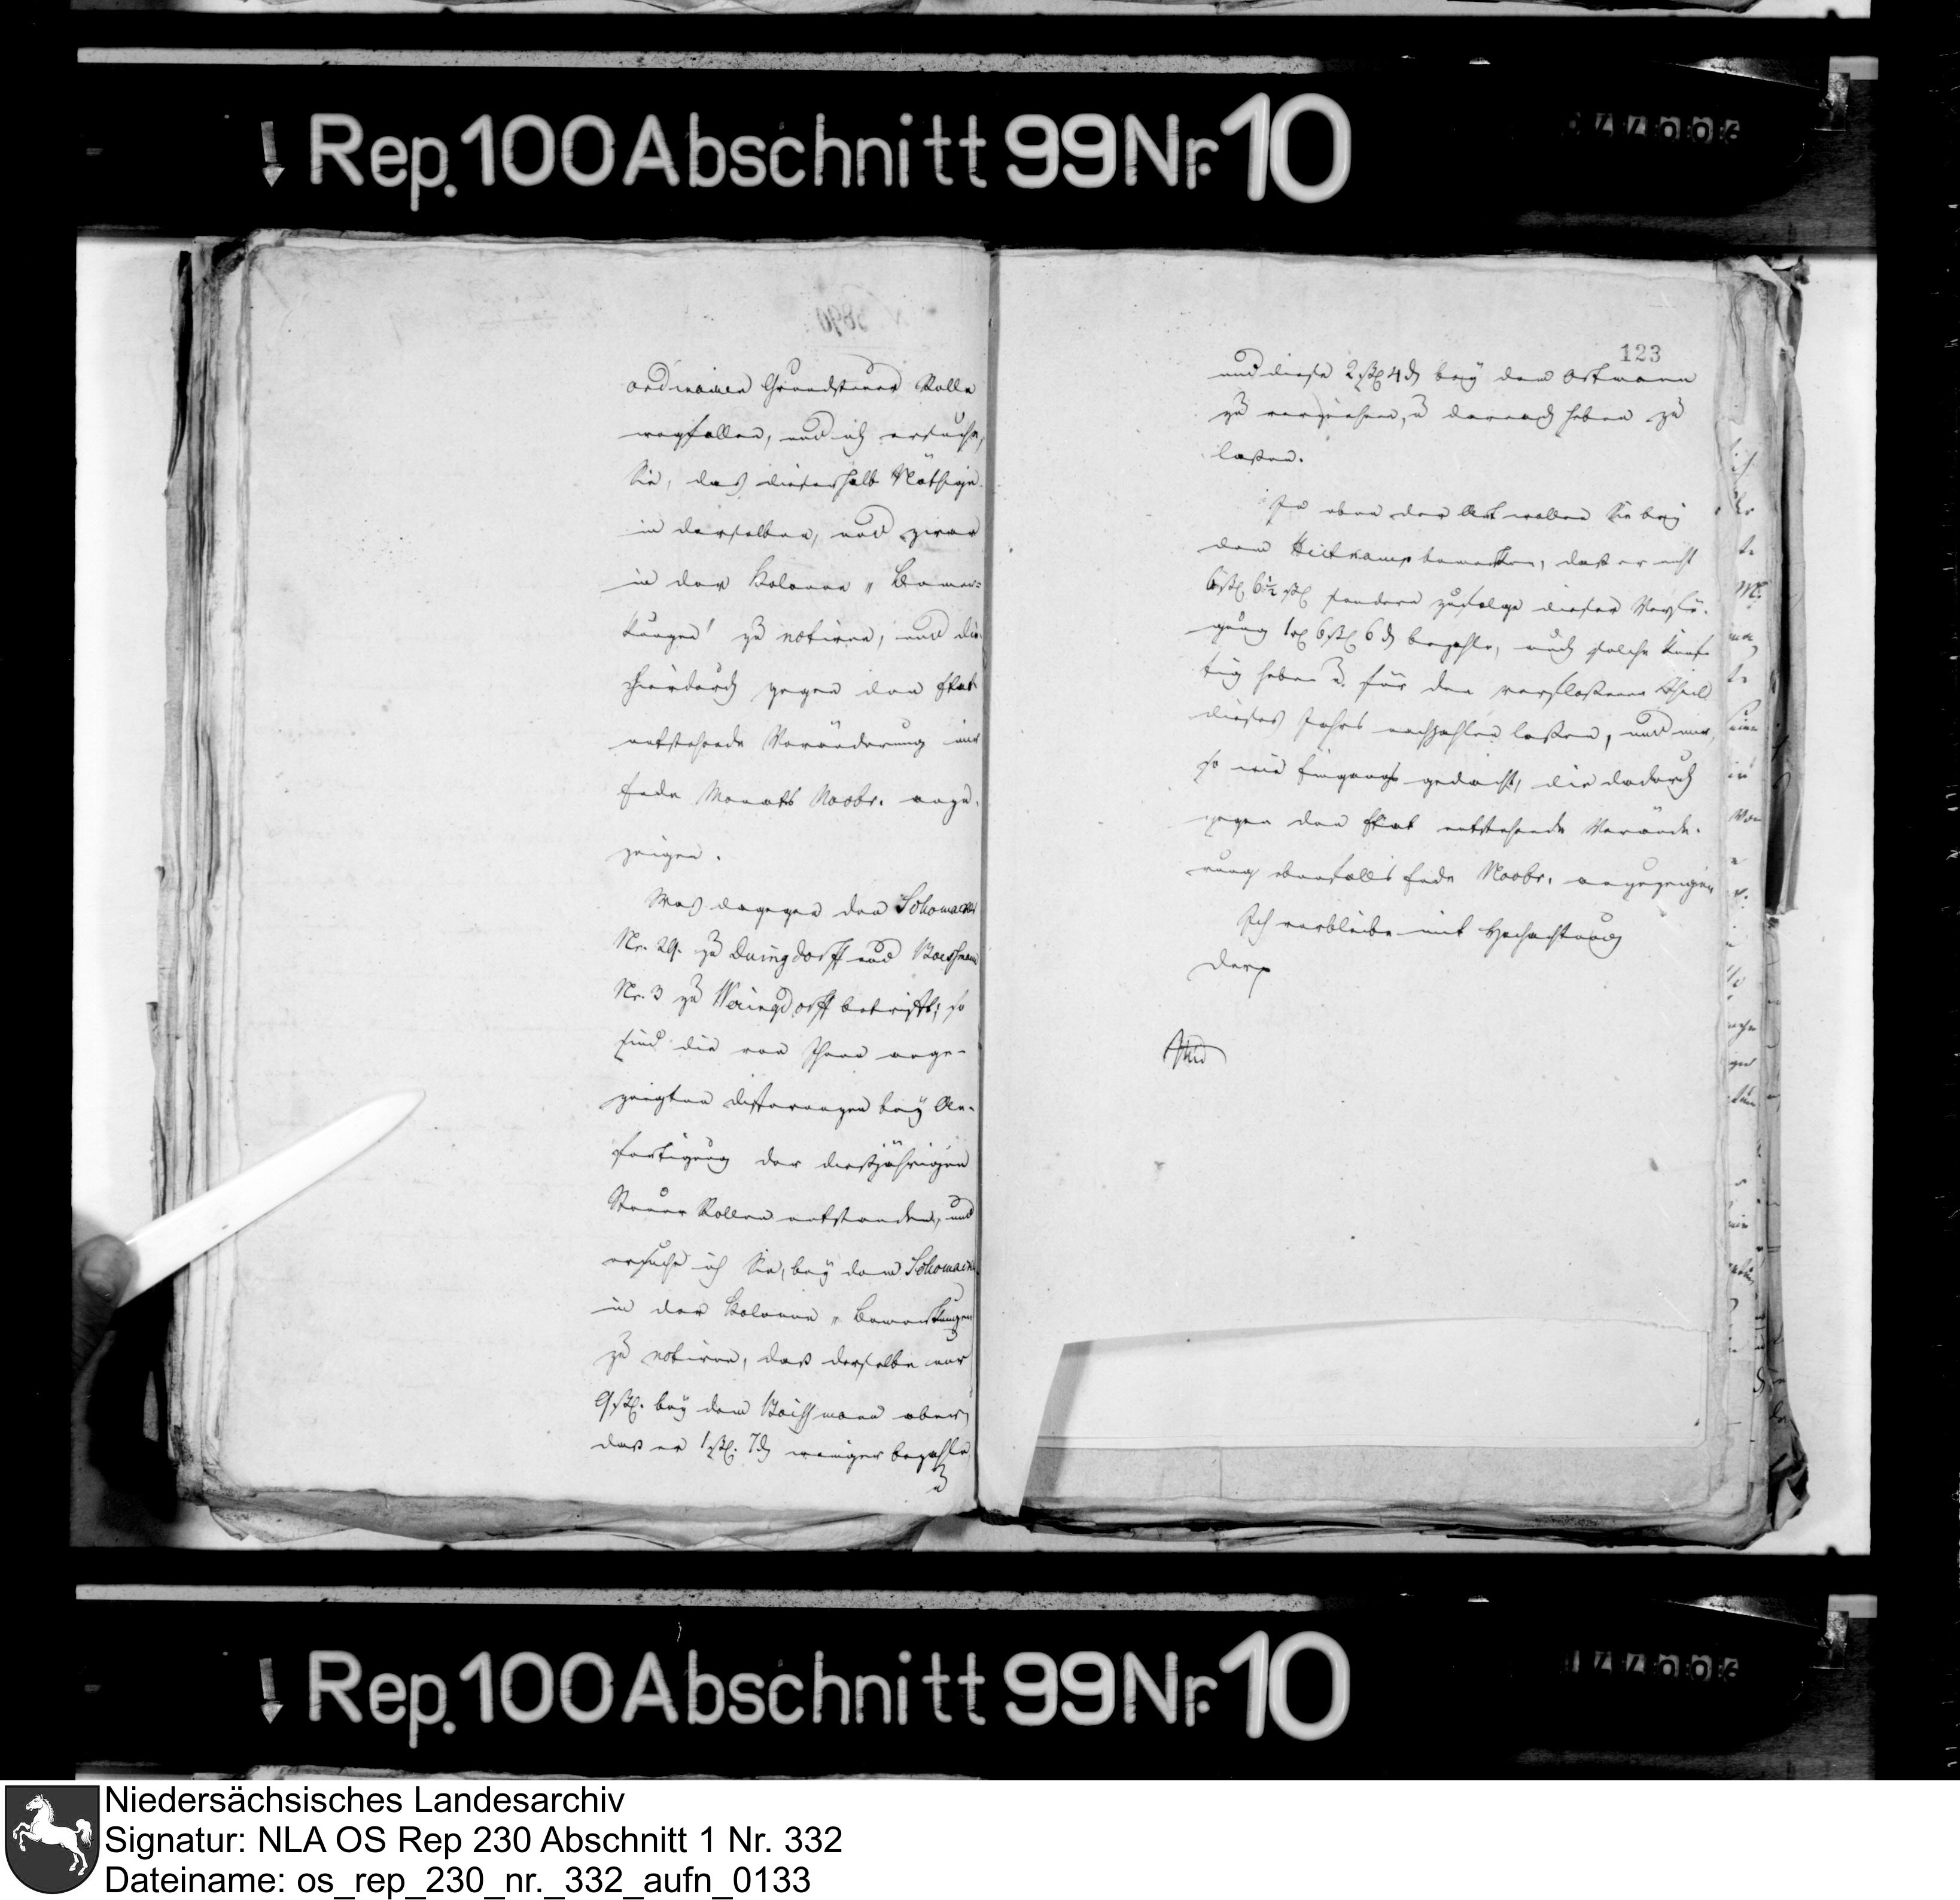 Rep. 100 Abschnitt 99 Nr. 10
ordinairen Grundsteuer Rolle
wegfallen, und ich ersuche,
Sie, das dieserhalb Nöthige
in derselben, und zwar
in der Kolonne „Bemer=
kungen" zu notiren, und die
hierdurch gegen den Etat
entstehende Veränderung mir
Ende Monats Novbr. anzu-
zeigen.
Was dagegen den Schomacker
Nr. 29. zu Duingdorff und
Nr. 3 zu betrifft; so
sind die von Ihnen ange-
zeigten Differenzen bey An-
fertigung der dießjährigen
Steuer Rollen entstanden, und
ersuche ich Sie, bey dem Schomacker
in der Kolonne „Bemerkungen
zu notiren, daß derselbe nur
9 bey dem aber,
daß er 1 7 weniger bezahle,
u
123
und diese 2 4 bey dem Ostmann
zu verziehen, u darnach heben zu
laßen.
In eben der Art wollen Sie bey
dem bemerken, daß er nicht
6 6½ sondern zufolge dieser Verfü-
gung 1 6 6 bezahle, auch solche künf-
tig heben u. für den verfloßenen Theil
dieses Jahrs nachzahlen laßen, und mir,
so wie Eingangs gedacht, die dadurch
gegen den Etat entstehende Verände-
rung ebenfalls Ende Novbr. anzuzeigen
Ich verbleibe mit Hochachtung
Rep. 100 Abschnitt 99 Nr. 10
Niedersächsisches Landesarchiv
Signatur: NLA OS Rep 230 Abschnitt 1 Nr. 332
Dateiname: os_rep_230_nr._332_aufn_0133